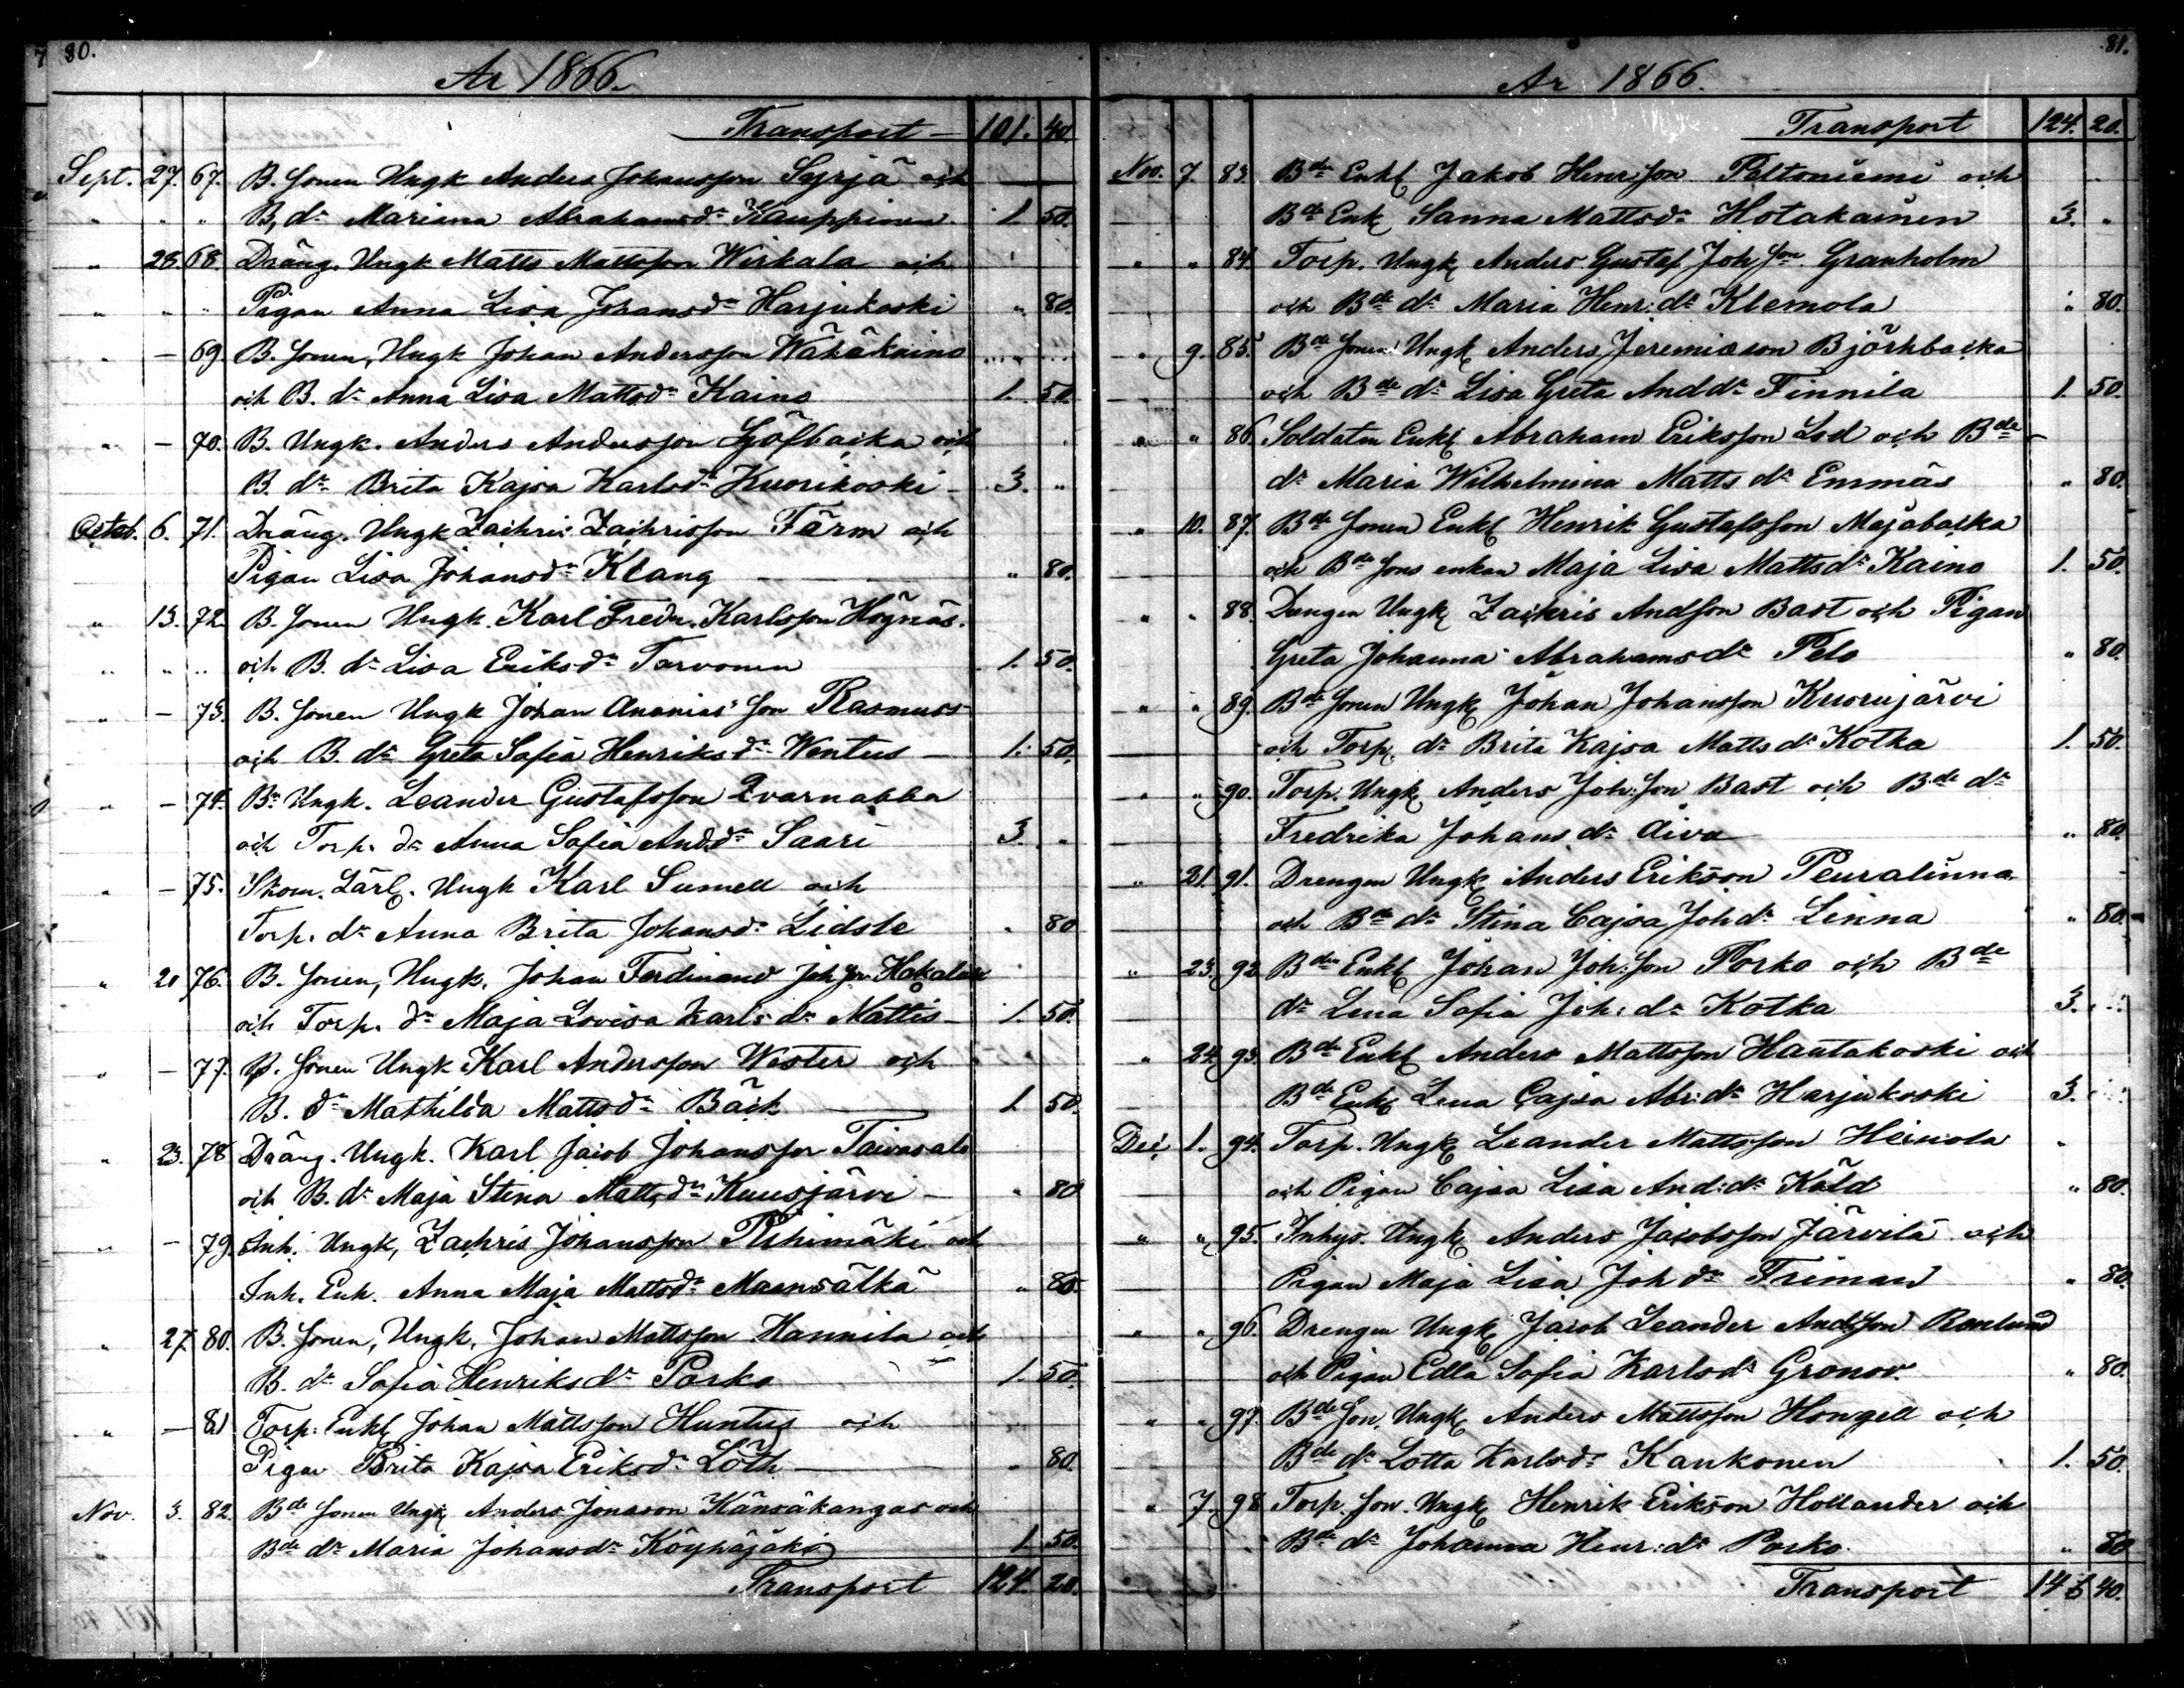 7 80.
År 1866.
Transport 101. 40.
Sept. 27. 67. B. Sonen Ungk Anders Johansson Syrjä och
" " " B. dr Mariana Abrahamsdr Kauppinen 1. 50.
" 28. 68. Dräng. Ungk Matts Mattsson Wirkala och
" " " Pigan Anna Lisa Johansdr Harjukoski " 80.
" — 69 B. Sonen, Ungk Johan Andersson Wähäkaino
och B. dr Anna Lisa Mattsdr Kaino 1. 50.
" — 70. B. Ungk. Anders Andersson Sjöfbacka och
B. dr Brita Kajsa Karlsdr Kuorikoski 3. "
Octob. 6. 71. Dräng. Ungk Zachris Zachrisson Färm och
Pigan Lisa Johansdr Klang " 80.
" 13. 72. B. Sonen Ungk. Karl Fredr. Karlsson Högnäs.
" " " och B. dr Lisa Eriksdr Tarvonen 1. 50.
" — 73. B. Sonen Ungk Johan Ananias Son Rasmuss
och B. dr Greta Sofia Henriksdr Wentus 1. 50.
" — 74. Bn Ungk. Leander Gustafsson Qvarnabba
och Torp. dr Anna Sofia Anddr Saari 3. "
" — 75. Skom. Lärl. Ungk Karl Sumell och
Torp. dr Anna Brita Johansdr Lidste " 80
" 20 76. B. Sonen, Ungk. Johan Ferdinand Joh Son Hakalax
och Torp. dr Maja Lovisa Karls dr Mattis 1. 50.
" — 77. B. Sonen Ungk Karl Andersson Wester och
B. dr Mathilda Mattsdr Bäck 1. 50.
" 23. 78 Dräng. Ungk. Karl Jacob Johansson Taivasalo
och B. dr Maja Stina Mattsdr Kuusjärvi " 80
" — 79. Inh. Ungk, Zachris Johansson Riihimäki och
Inh. Enk. Anna Maja Mattsdr Maansälkä " 80.
" 27. 80. B. Sonen, Ungk. Johan Mattsson Hannila och
B. dr Sofia Henriksdr Porko 1. 50.
" — 81 Torp. Enkl Johan Mattsson Huntus och
Pigan Brita Kajsa Eriksdr Löth " 80.
Nov. 3. 82. Bde Sonen Ungk Anders Jonason Känsäkangas och
" Bde dr Maria Johansdr Köyhäjoki 1. 50.
Transport 124. 20.
81.
År 1866.
Transport 124. 20.
Nov. 7. 83. Bde Enkl Jakob Henrison Peltoniemi och
Bde Enk Sanna Mattsdr Hotakainen 3. "
" " 84. Torp. Ungk Anders Gustaf Joh Son Granholm
och Bde dr Maria Henr: dr Klemola " 80.
" 9. 85. Bde Sonen Ungk Anders Jeremiason Björkbacka
och Bde dr Lisa Greta Anddr Finnila 1. 50.
" " 86. Soldaten Enkl Abraham Eriksson Lod och Bde
dr Maria Wilhelmina Matts dr Emmäs " 80.
" 10. 87. Bde Sonen Enkl Henrik Gustafsson Majabacka
och Bde Sons enkan Maja Lisa Mattsdr Kaino 1. 50.
" " 88. Drengen Ungk Zackris AndSon Bast och Pigan
Greta Johanna Abrahamsdr Pelo " 80.
" " 89. Bde Sonen Ungk Johan Johansson Kuorujärvi
och Torp. dr Brita Kajsa Matts dr Kotka 1. 50.
" " 90. Torp. Ungk Anders Joh: Son Bast och Bde dr
Fredrika Johans dr Aiva " 80.
" 21. 91. Drengen Ungk Anders Erikson Peuralinna
och Bde dr Stina Cajsa Joh dr Linna " 80.
" 23. 92 Bden Enkl Johan Joh: Son Porko och Bde
dr Lena Sofia Joh: dr Kotka 3. "
" 24. 93. Bde Enkl Anders Mattsson Hautakoski och
Bde Enk Lena Cajsa Abr: dr Harjukoski 3. "
Dec. 1. 94. Torp. Ungk Leander Mattsson Heinola
och Pigan Cajsa Lisa And: dr Käld " 80.
" " 95. Inhys. Ungk Anders Jacobsson Järvilä och
Pigan Maja Lisa Joh dr Friman " 80.
" " 96. Drengen Ungk Jacob Leander AndSon Ranlund
och Pigan Edla Sofia Karlsdr Gronov. " 80.
" " 97. Bde Son, Ungk Anders Mattsson Hongell och
Bde dr Lotta Karlsdr Kankonen 1. 50.
" 7. 98. Torp. Son. Ungk Henrik Erikson Hollander och
Bde dr Johanna Henr: dr Porko. " 80
Transport 146 40.